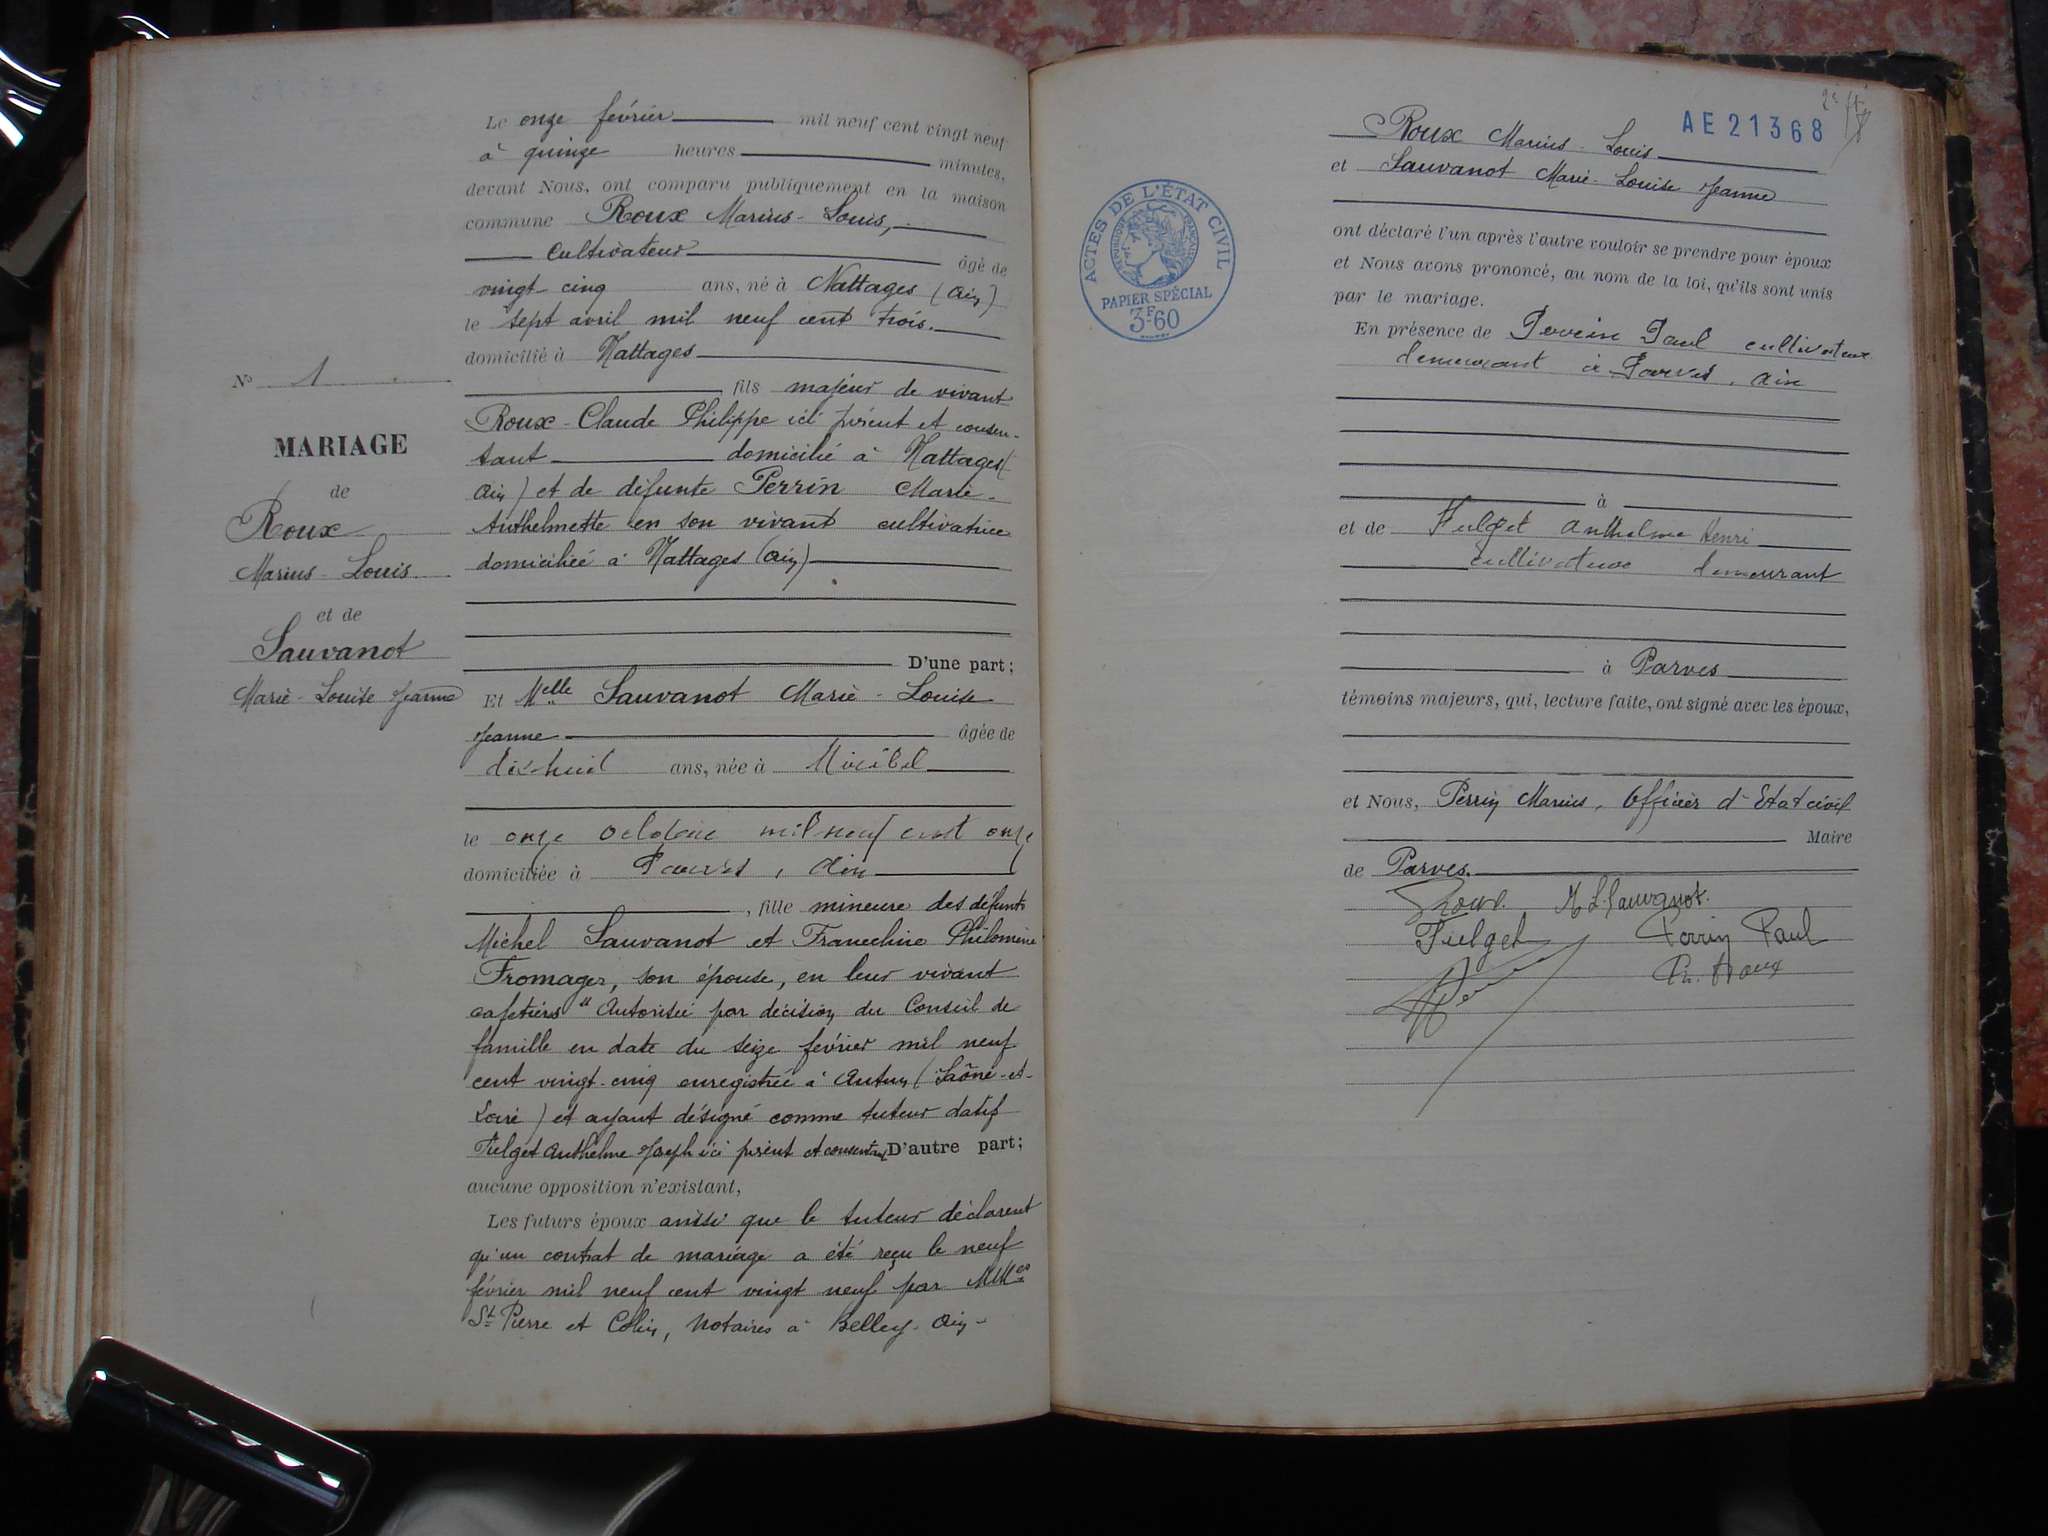 Le onze février mil neuf cent vingt neuf
à quinze heures minutes,
devant Nous, ont comparu publiquement en la maison
commune Roux Marius-Louis,
cultivateur âgé de
vingt-cinq ans, né à Nattages (Ain)
le sept avril mil neuf cent trois.
domicilié à Nattages
fils majeur de vivant
Roux Claude Philippe ici présent et consen-
tant domicilié à Nattages (
Ain) et de défunte Perrin Marie-
Anthelmette en son vivant cultivatrice
domiciliée à Nattages (Ain)
D'une part;
N° 1
MARIAGE
de
Roux
Marius-Louis
et de
Sauvanot
Marie-Louise Jeanne
Et Melle Sauvanot Marie-Louise
Jeanne âgée de
dix-huit ans, née à Miribel
le onze octobre mil neuf cent onze
domiciliée à Parves, Ain
, fille mineure des défunts
Michel Sauvanot et Francheline Philomène
Fromager, son épouse, en leur vivant
cafetiers " Autorisée par décision du Conseil de
famille en date du seize février mil neuf
cent vingt-cinq enregistrée à Autun (Saône-et-
Loire) et ayant désigné comme tuteur datif
Fulget Anthelme Joseph ici présent et consentant D'autre part;
aucune opposition n'existant,
Les futurs époux ainsi que le tuteur déclarent
qu'un contrat de mariage a été reçu le neuf
février mil neuf cent vingt neuf par MMes
St Pierre et Colin, Notaires à Belley. Ain -
AE21368
Roux Marius-Louis
et Sauvanot Marie-Louise Jeanne
ont déclaré l'un après l'autre vouloir se prendre pour époux
et Nous avons prononcé, au nom de la loi, qu'ils sont unis
par le mariage.
En présence de Perrin Paul cultivateur
demeurant à Parves, Ain
à
et de Fulget Anthelme Henri
cultivateur demeurant
à Parves
témoins majeurs, qui, lecture faite, ont signé avec les époux,
et Nous, Perrin Marius, Officier d'Etat civil
Maire
de Parves.
Roux. M L Sauvanot.
Fulget Perrin Paul
Ph. Roux
ACTES DE L'ÉTAT CIVIL
RÉPUBLIQUE FRANÇAISE
PAPIER SPÉCIAL
3F60